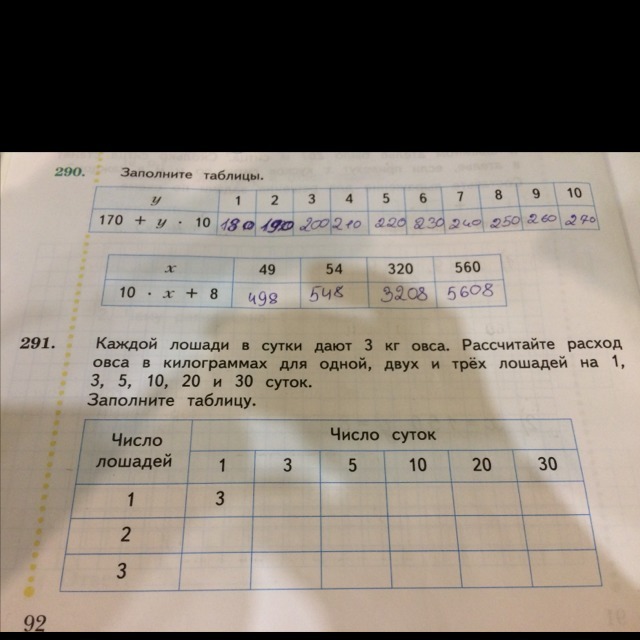 290. Заполните таблицы.
y 1 2 3 4 5 6 7 8 9 10
170 + y · 10 180 190 200 210 220 230 240 250 260 270
x 49 54 320 560
10 · x + 8 498 548 3208 5608
291. Каждой лошади в сутки дают 3 кг овса. Рассчитайте расход
овса в килограммах для одной, двух и трёх лошадей на 1,
3, 5, 10, 20 и 30 суток.
Заполните таблицу.
Число лошадей Число суток
1 3 5 10 20 30
1 3
2
3
92